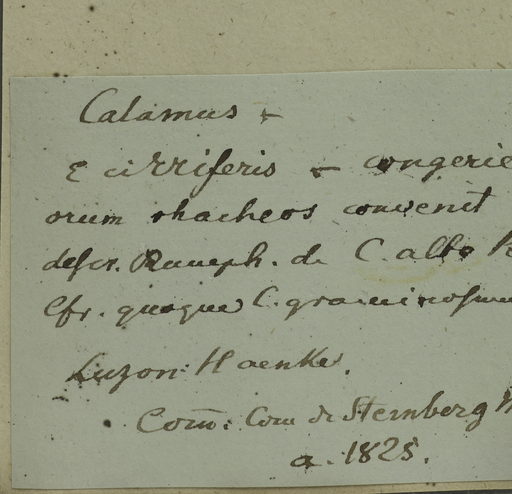 Calamus +
E cirriferis + congerie
orum rhacheos convenit
descr. Rumph. de C. albo R
Cfr. quoque C. graminosum
Luzon: Haenke.
Com̄: Com de Sternberg M
a. 1825.